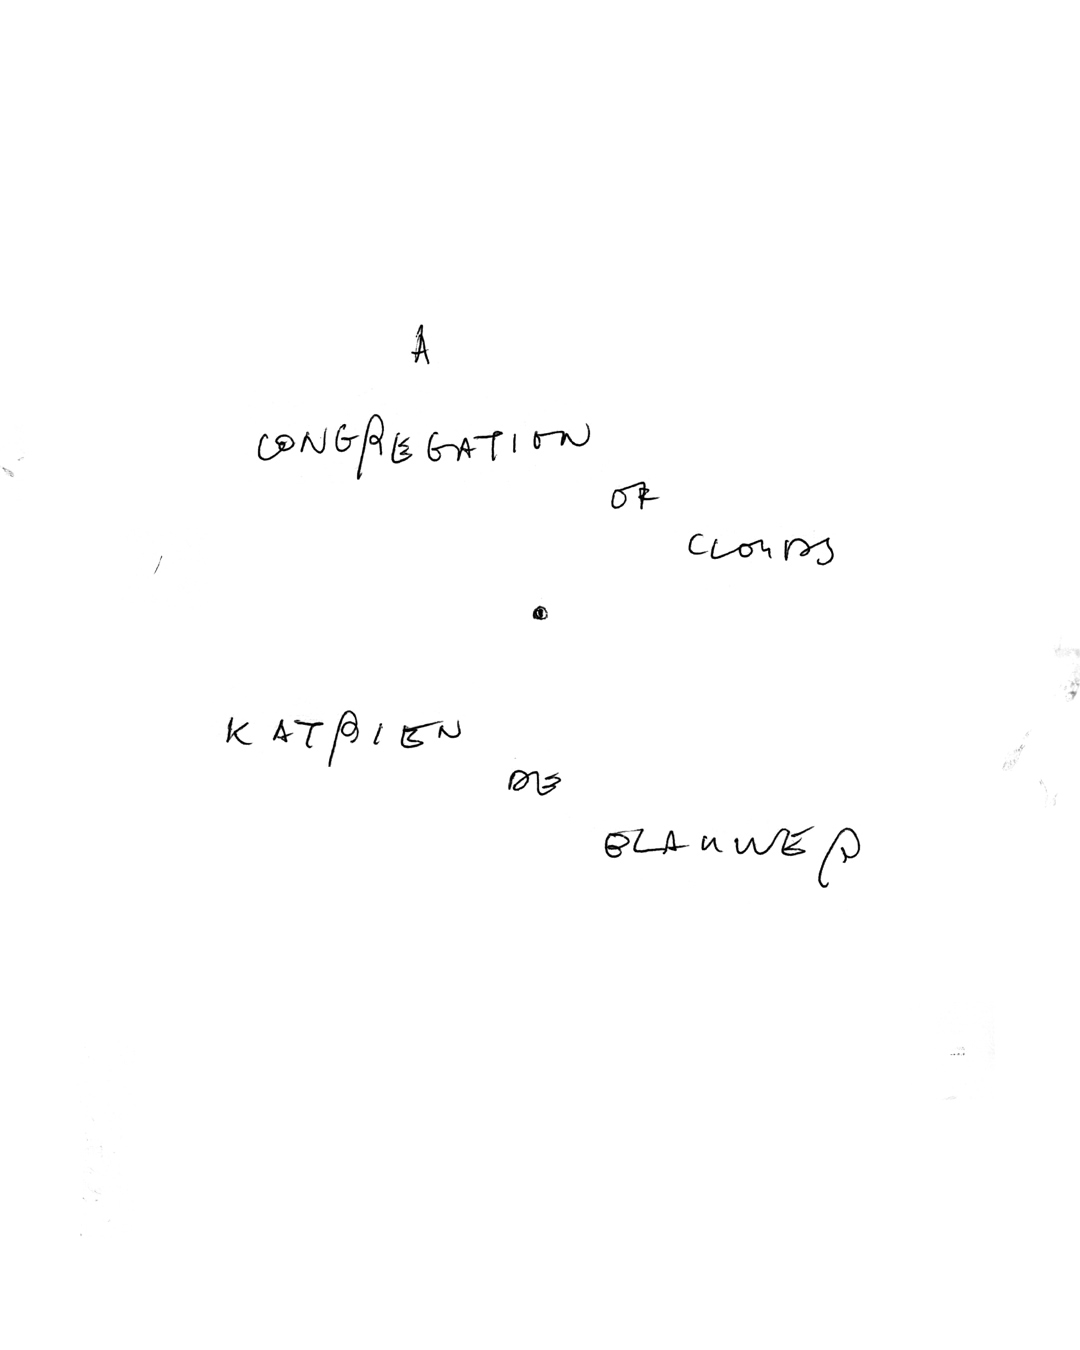 A
CONGREGATION
OF
CLOUDS
KATRIEN
DE
BLAUWER